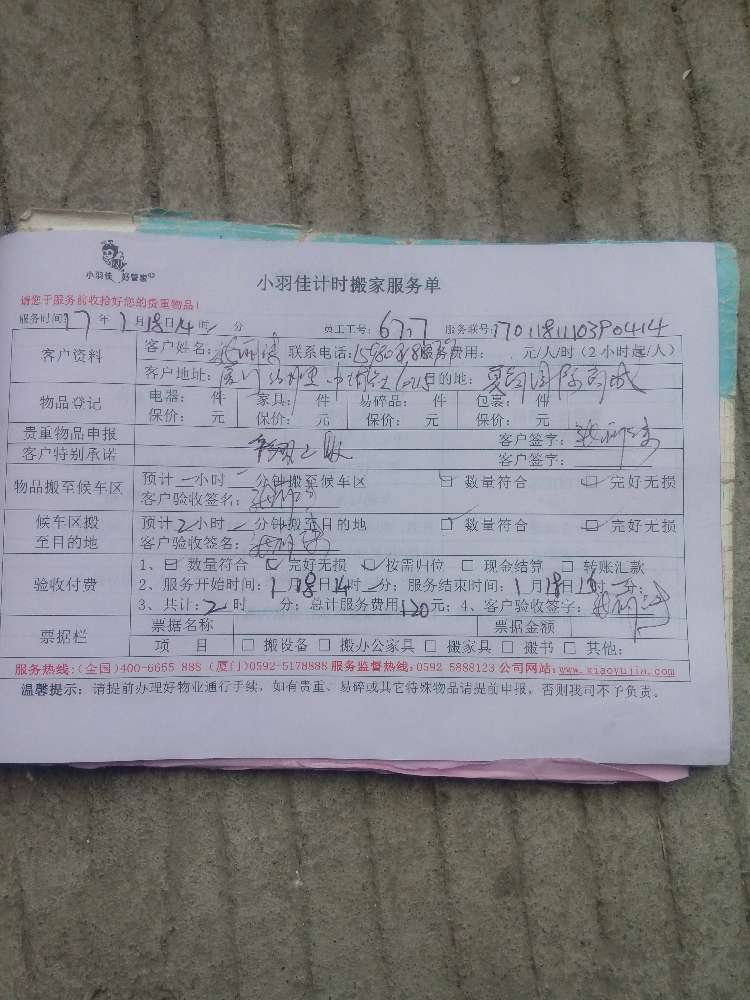 小羽佳 好管家
小羽佳计时搬家服务单
请您于服务前收拾好您的贵重物品！
服务时间 17 年 1 月 18 日 14 时 分 员工工号： 6717 服务联号：
客户资料
客户姓名： 联系电话： 服务费用： 元/人/时（2小时起/人）
客户地址： 目的地： 国际商城
物品登记
电器： 件 家具： 件 易碎品： 件 包裹： 件
保价： 元 保价： 元 保价： 元 保价： 元
贵重物品申报 客户签字：
客户特别承诺 客户签字：
物品搬至候车区
预计 小时 分钟搬至候车区 数量符合 完好无损
客户验收签名：
候车区搬至目的地
预计 2 小时 分钟搬至目的地 数量符合 完好无损
客户验收签名：
验收付费
1、 数量符合 完好无损 按需归位 现金结算 转账汇款
2、服务开始时间： 1 月 18 日 14 时 分；服务结束时间： 1 月 18 日 16 时 分；
3、共计： 2 时 分；总计服务费用 120 元；4、客户验收签字：
票据栏
票据名称 票据金额
项 目 搬设备 搬办公家具 搬家具 搬书 其他：
服务热线：(全国)400-6665 888 (厦门)0592-5178888 服务监督热线：0592 5888123 公司网站：www.xiaoyujia.com
温馨提示：请提前办理好物业通行手续，如有贵重、易碎或其它特殊物品请提前申报，否则我司不予负责。